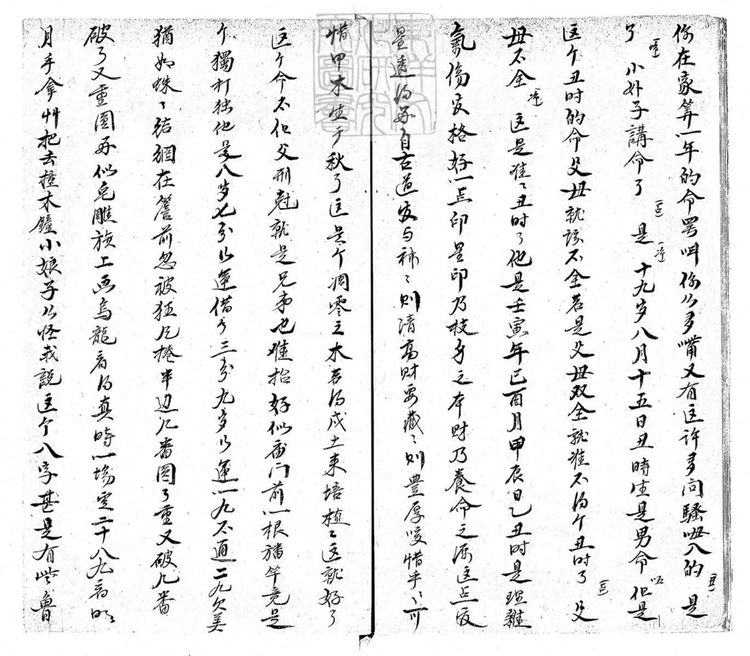 你在家算一年的命罢叫你以多嘴又有这许多问骚呣入的 是
了 小外子講命了 是 十九岁八月十五日丑時生是男命 但是
这个丑时的命父母就该不全若是父母双全就准不得个丑时了 父
母不全 这是准〻丑时了他是壬寅年己酉月甲辰日乙丑时是
氣傷官格好一正印星印乃枝身之本財乃養命之源这正官
星透得好自古道官与補〻则清高財要藏〻则豊厚嗳惜乎〻可
惜甲木生于秋了这是个凋零之木若得戊土来培植〻这就好了
这个命不但父刑尅就是兄弟也难抬好似庙门前一根旛竿竟是
个獨打独他是八岁七分以運借了三分九岁以運一九不通二九欠美
猶如蛛〻结網在簷前忽被狂风捲半边几番圆了重又破几番
破了又重圆再似皂雕旗上画乌龍看得真時一場空二十八九
月手拿艸把去撞木鐘小娘子以怪我説这个八字甚是有些魯